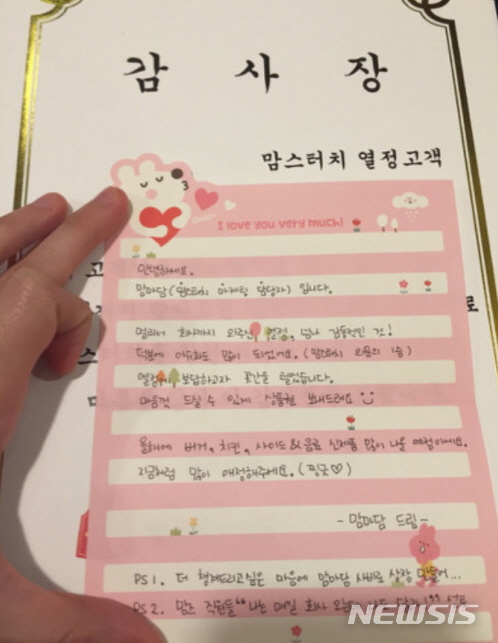 감사장
맘스터치 열정고객
I love you very much!
안녕하세요.
맘마담(맘스터치 마케팅 담당자) 입니다.
멀리서 회사까지 와주신 열정, 넘나 감동적인 것!
덕분에 이슈화도 많이 되었어요. (맘스터치 의문의 1승)
열정에 보답하고자 곳간을 털었습니다.
마음껏 드실 수 있게 상품권 보내드려요
올해에 버거, 치킨, 사이드&음료 신제품 많이 나올 예정이에요.
지금처럼 많이 애정해주세요. (찡긋♡)
-맘마담 드림-
PS1. 더 챙겨드리고싶은 마음에 맘마담 사비로 상장 만들어...
PS2. 맘스 직원들 "나는 매일 회사 오는데
NEWSIS